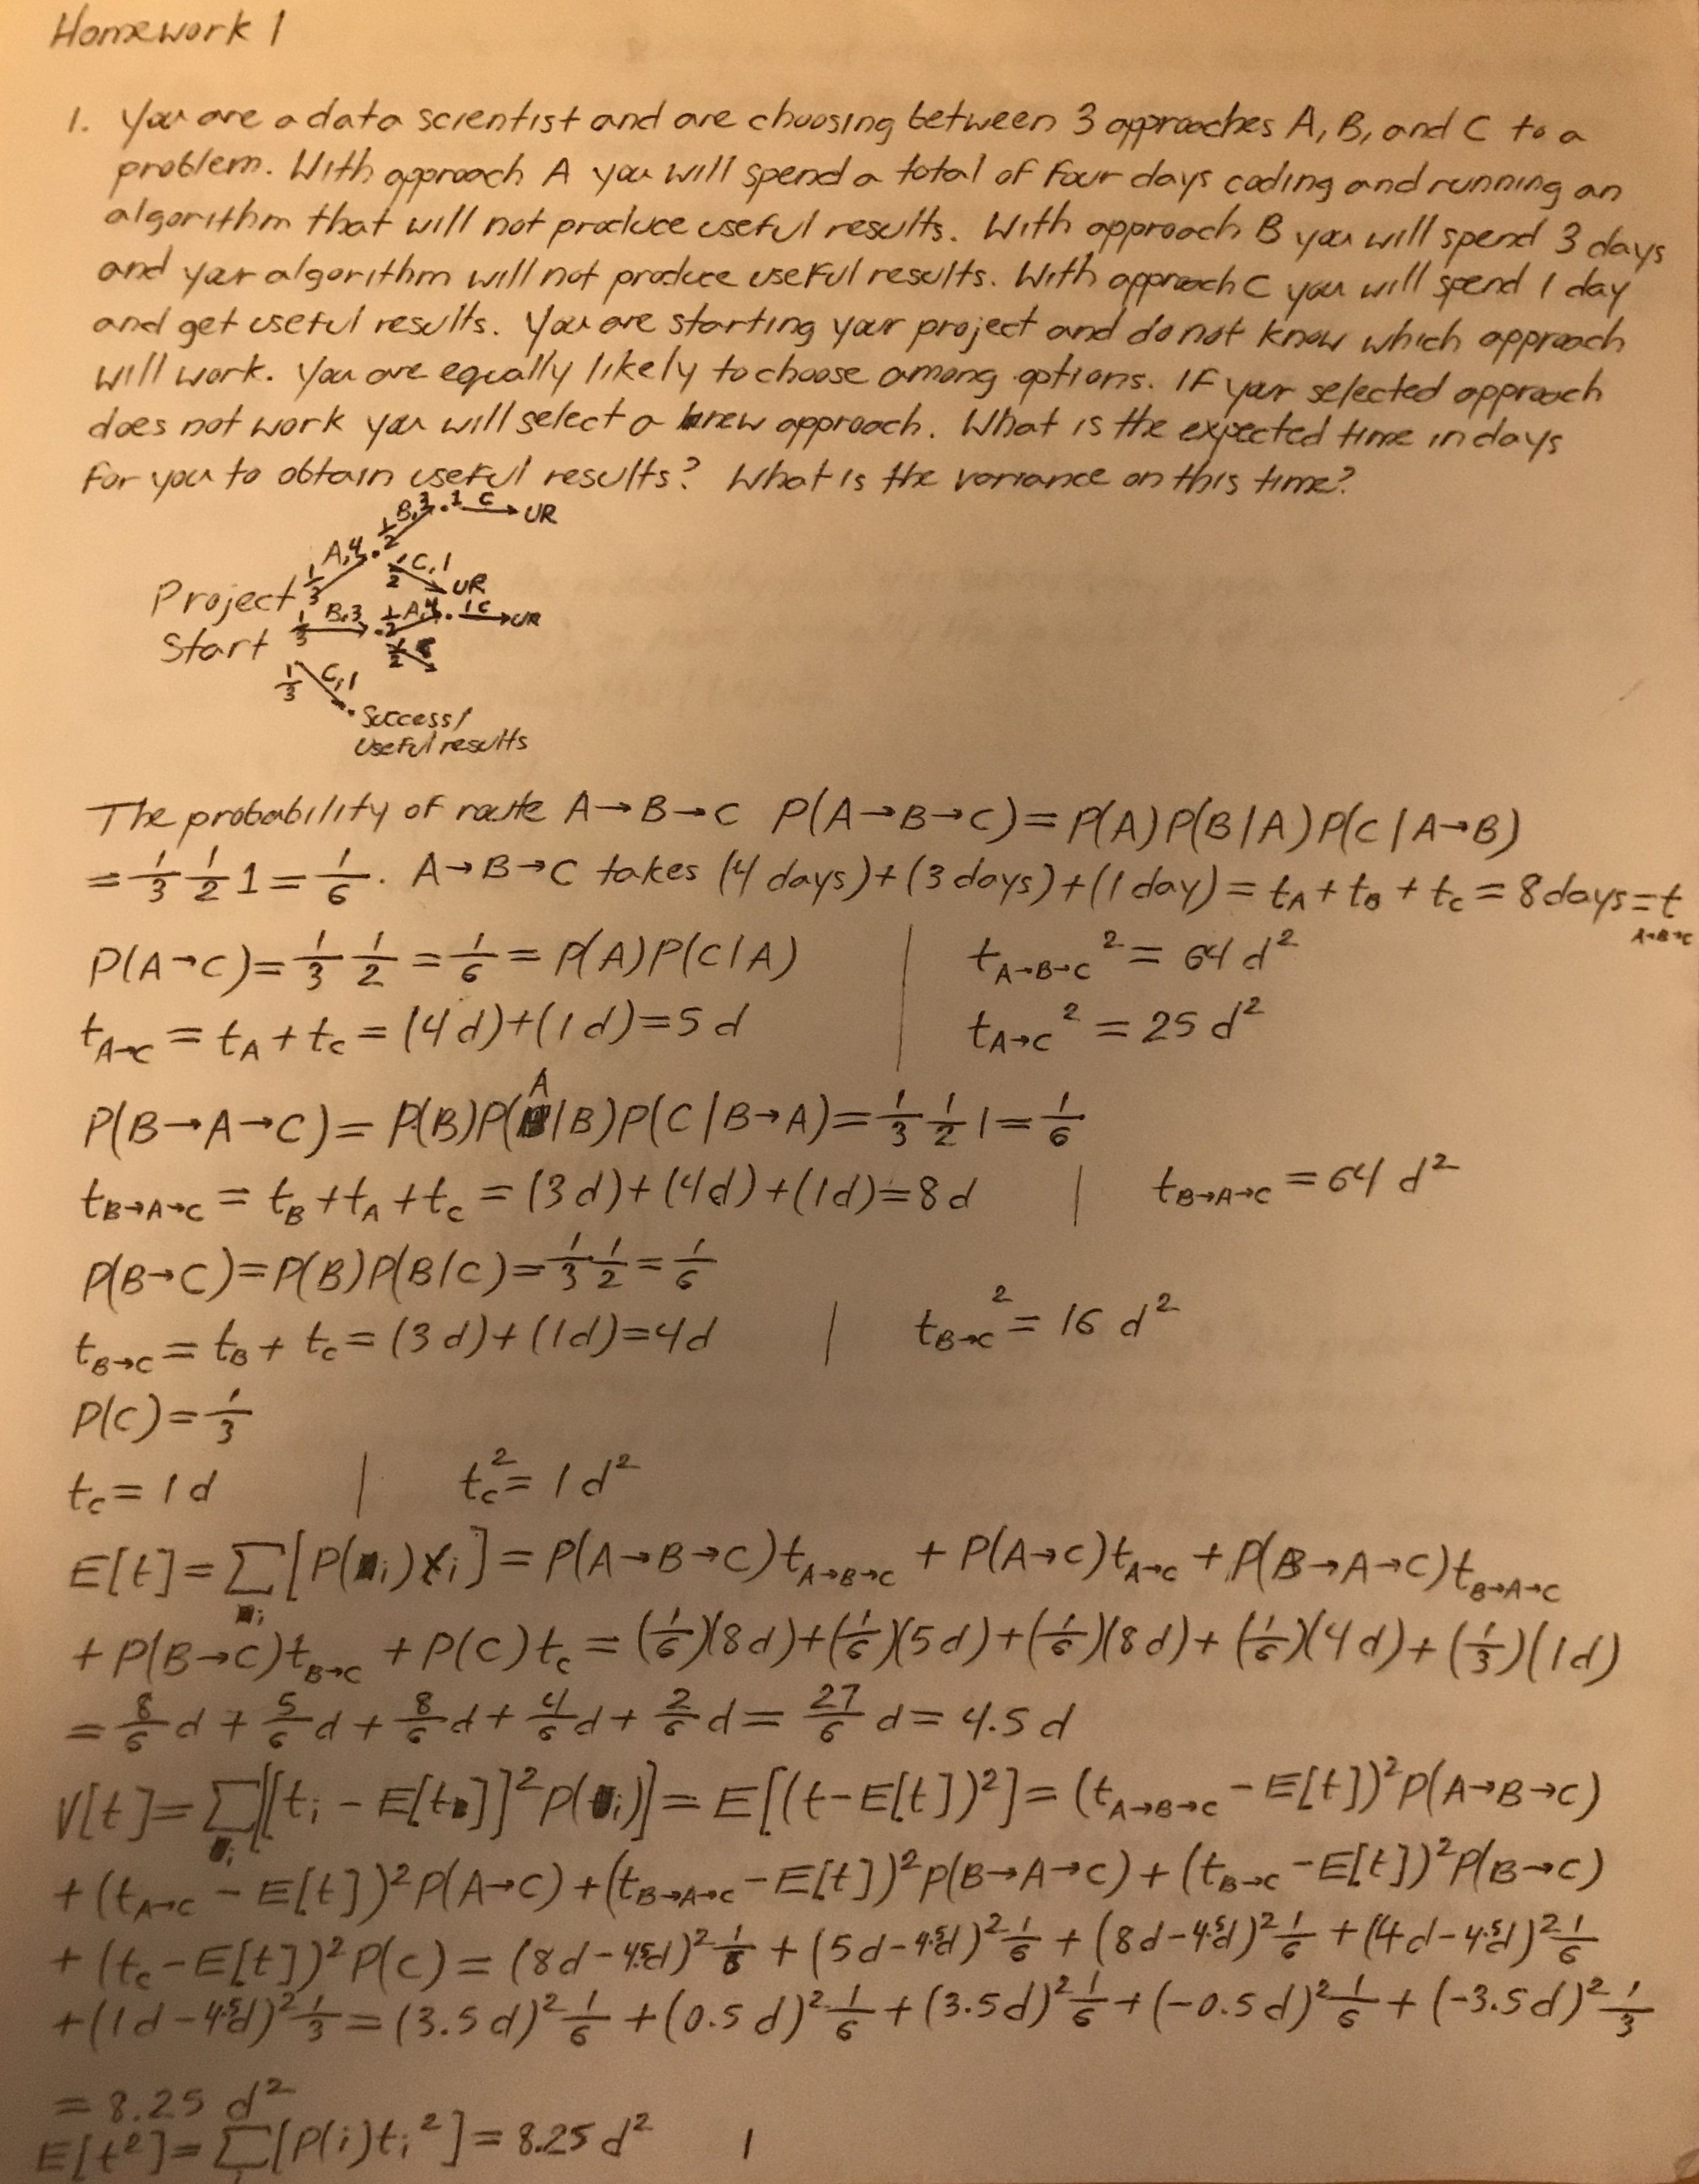 Homework 1
1. You are a data scientist and are choosing between 3 approaches A, B, and C to a
problem. With approach A you will spend a total of four days coding and running an
algorithm that will not produce useful results. With approach B you will spend 3 days
and your algorithm will not produce useful results. With approach C you will spend 1 day
and get useful results. You are starting your project and do not know which approach
will work. You are equally likely to choose among options. If your selected approach
does not work you will select a new approach. What is the expected time in days
for you to obtain useful results? What is the variance on this time?
1/2 B,3 . 1 C → UR
1/3 A,4 . 1/2 C,1 UR
Project Start
1/3 B,3 . 1/2 A,4 . 1 C → UR
1/2
1/3 C,1
Success/
Useful results
The probability of route A→B→C P(A→B→C) = P(A)P(B|A)P(C|A→B)
= 1/3 1/2 1 = 1/6. A→B→C takes (4 days)+(3 days)+(1 day) = t_A + t_B + t_C = 8 days = t_A→B→C
P(A→C) = 1/3 1/2 = 1/6 = P(A)P(C|A) | t_A→B→C² = 64 d²
t_A→C = t_A + t_C = (4 d)+(1 d) = 5 d | t_A→C² = 25 d²
P(B→A→C) = P(B)P(A|B)P(C|B→A) = 1/3 1/2 1 = 1/6
t_B→A→C = t_B + t_A + t_C = (3 d)+(4 d)+(1 d) = 8 d | t_B→A→C = 64 d²
P(B→C) = P(B)P(B|C) = 1/3 1/2 = 1/6
t_B→C = t_B + t_C = (3 d)+(1 d) = 4 d | t_B→C² = 16 d²
P(C) = 1/3
t_C = 1 d | t_C² = 1 d²
E[t] = Σ_i [P(i) t_i] = P(A→B→C)t_A→B→C + P(A→C)t_A→C + P(B→A→C)t_B→A→C
+ P(B→C)t_B→C + P(C)t_C = (1/6)(8 d)+(1/6)(5 d)+(1/6)(8 d)+(1/6)(4 d)+(1/3)(1 d)
= 8/6 d + 5/6 d + 8/6 d + 4/6 d + 2/6 d = 27/6 d = 4.5 d
V[t] = Σ_i [[t_i - E[t]]² P(i)] = E[(t-E[t])²] = (t_A→B→C - E[t])² P(A→B→C)
+ (t_A→C - E[t])² P(A→C) + (t_B→A→C - E[t])² P(B→A→C) + (t_B→C - E[t])² P(B→C)
+ (t_C - E[t])² P(C) = (8d - 4.5d)² 1/6 + (5d - 4.5d)² 1/6 + (8d - 4.5d)² 1/6 + (4d - 4.5d)² 1/6
+ (1d - 4.5d)² 1/3 = (3.5 d)² 1/6 + (0.5 d)² 1/6 + (3.5d)² 1/6 + (-0.5 d)² 1/6 + (-3.5d)² 1/3
= 8.25 d²
E[t²] = Σ_i [P(i)t_i²] = 8.25 d² 1